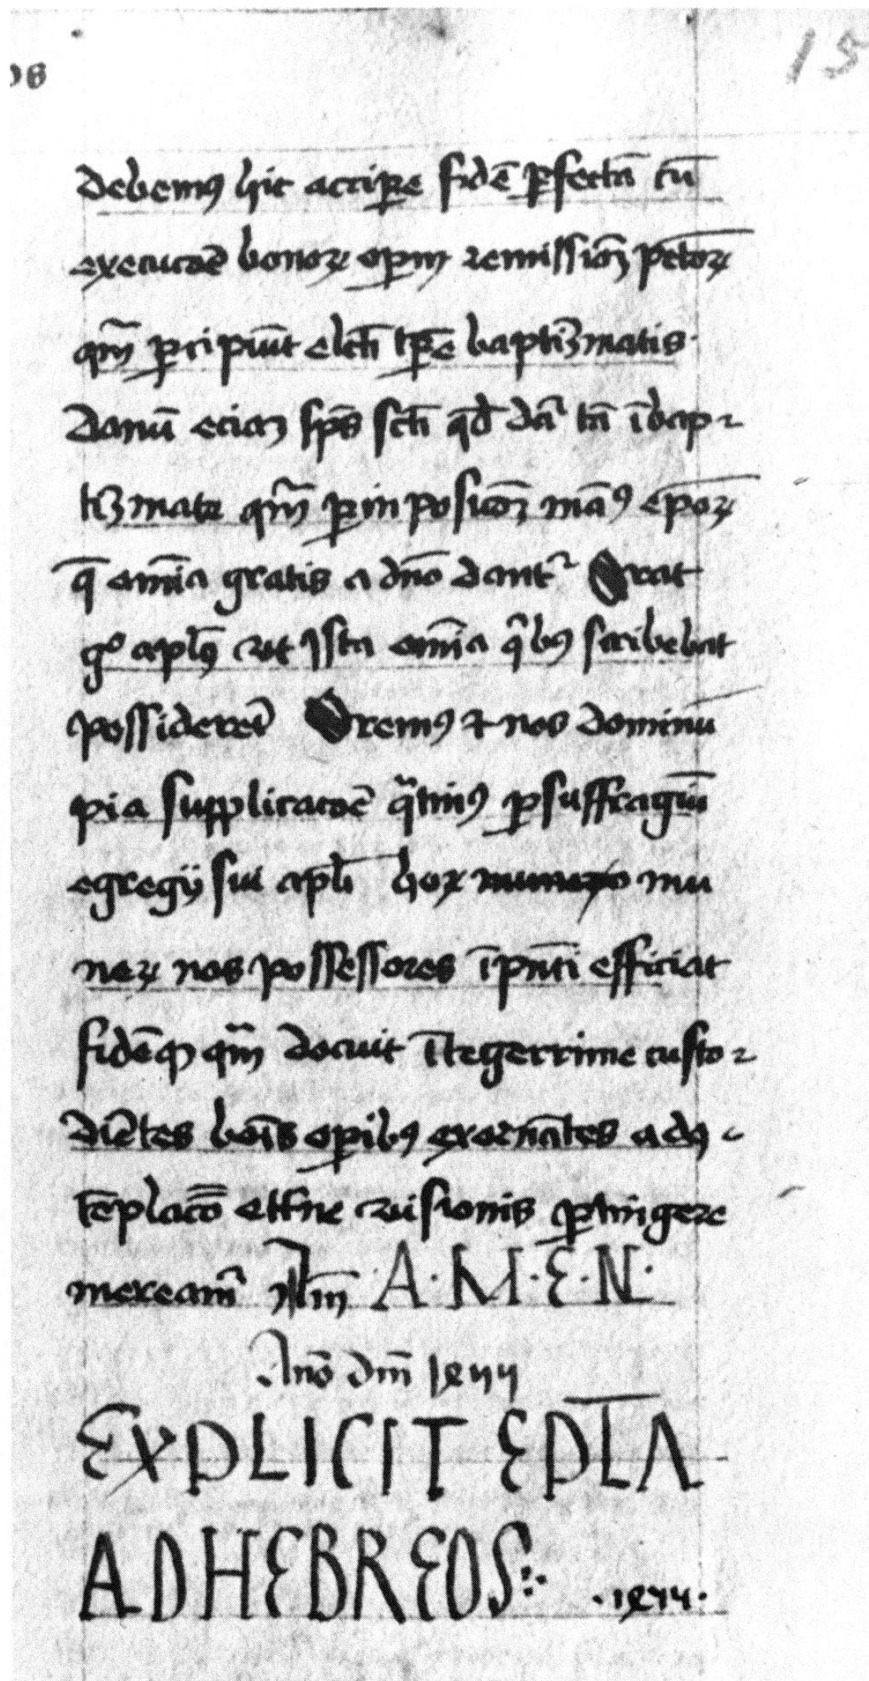 os 15
debemꝰ hic accipe fidē ꝑfectā cū
execucōē bonoꝝ opm remissionē pctoꝝ
qm̄ ꝑcipiūt elcti tꝑe baptiȝmatis·
Donū eciaȝ sp̄s scī qd̄ dat̉ tā ī bap
tiȝmate qm̄ ꝑ inposicōȝ manꝰ epoꝝ
q̄ om̄ia gratis a dn̄o dant᷑ Orat
gͦ apl̄s vt ista om̄ia qͥbꝰ scribebat
possideret Oremꝰ ⁊ nos dominū
pia supplicacōē qͣtinꝰ ꝑ suffragiū
egregij sui apl̄i hoꝝ mu
neꝝ nos possessores ī pn̄ti efficiat
fidēqꝫ qm̄ docuit ītegerrime custo
diētes boīs oꝑibꝰ exornātes ad
tēplacō etne visionis ꝑtingere
meream̉ A·M·E·N·
Ano dm̄ 1477
EXPLICIT EPLA
AD HEBREOS: ·1477·